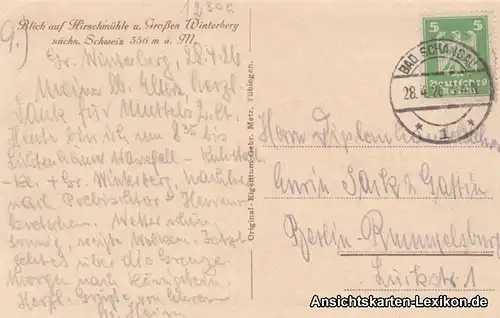 12305
9.)
Blick auf Hirschmühle u. Großen Winterberg
sächs. Schweiz 556 m ü. M.
Gr. Winterberg, 28.4.26
Meine lb. Eltern, herzl.
Dank für Mutters
Heute bin ich um 8 30 bis
Lichtenhainer Wasserfall - Kuhstall
- Kl. + Gr. Winterberg, nachher
nach Prebischtor
Wetter schön,
sonnig, weiße Wolken. Jetzt
gehts über die Grenze.
Morgen nach Königstein.
Herzl. Grüße von Eurem
Original-Eigentum Gebr. Metz, Tübingen.
5 5
Deutsches
BAD SCHANDAU
28.4.26
* 1 *
Herrn Diplom
Erwin & Gattin
Berlin-Rummelsburg
1
Ansichtskarten-Lexikon.de